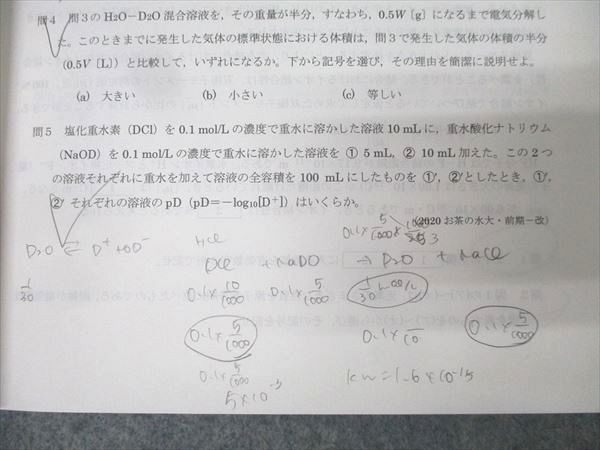 問4 問3のH2O-D2O混合溶液を，その重量が半分，すなわち，0.5W〔g〕になるまで電気分解し
た。このときまでに発生した気体の標準状態における体積は，問3で発生した気体の体積の半分
(0.5V〔L〕)と比較して，いずれになるか。下から記号を選び，その理由を簡潔に説明せよ。
(a) 大きい (b) 小さい (c) 等しい
問5 塩化重水素（DCl）を0.1mol/Lの濃度で重水に溶かした溶液10mLに，重水酸化ナトリウム
（NaOD）を0.1mol/Lの濃度で重水に溶かした溶液を①5mL，②10mL加えた。この2つ
の溶液それぞれに重水を加えて溶液の全容積を100mLにしたものを①′，②′としたとき，①′，
②′それぞれの溶液のpD（pD＝－log₁₀[D⁺]）はいくらか。
(2020 お茶の水大・前期－改)
D2O ⇄ D⁺ + OD⁻
HCl
0.1× 5/1000 ×
DCl + NaDO → D2O + NaCl
1/30
0.1× 10/1000 0.1× 5/1000 1/30 mol/L
0.1× 5/1000 0.1× 0.1× 5/1000
0.1× 5/1000
kw=1.6×10⁻¹⁵
5×10